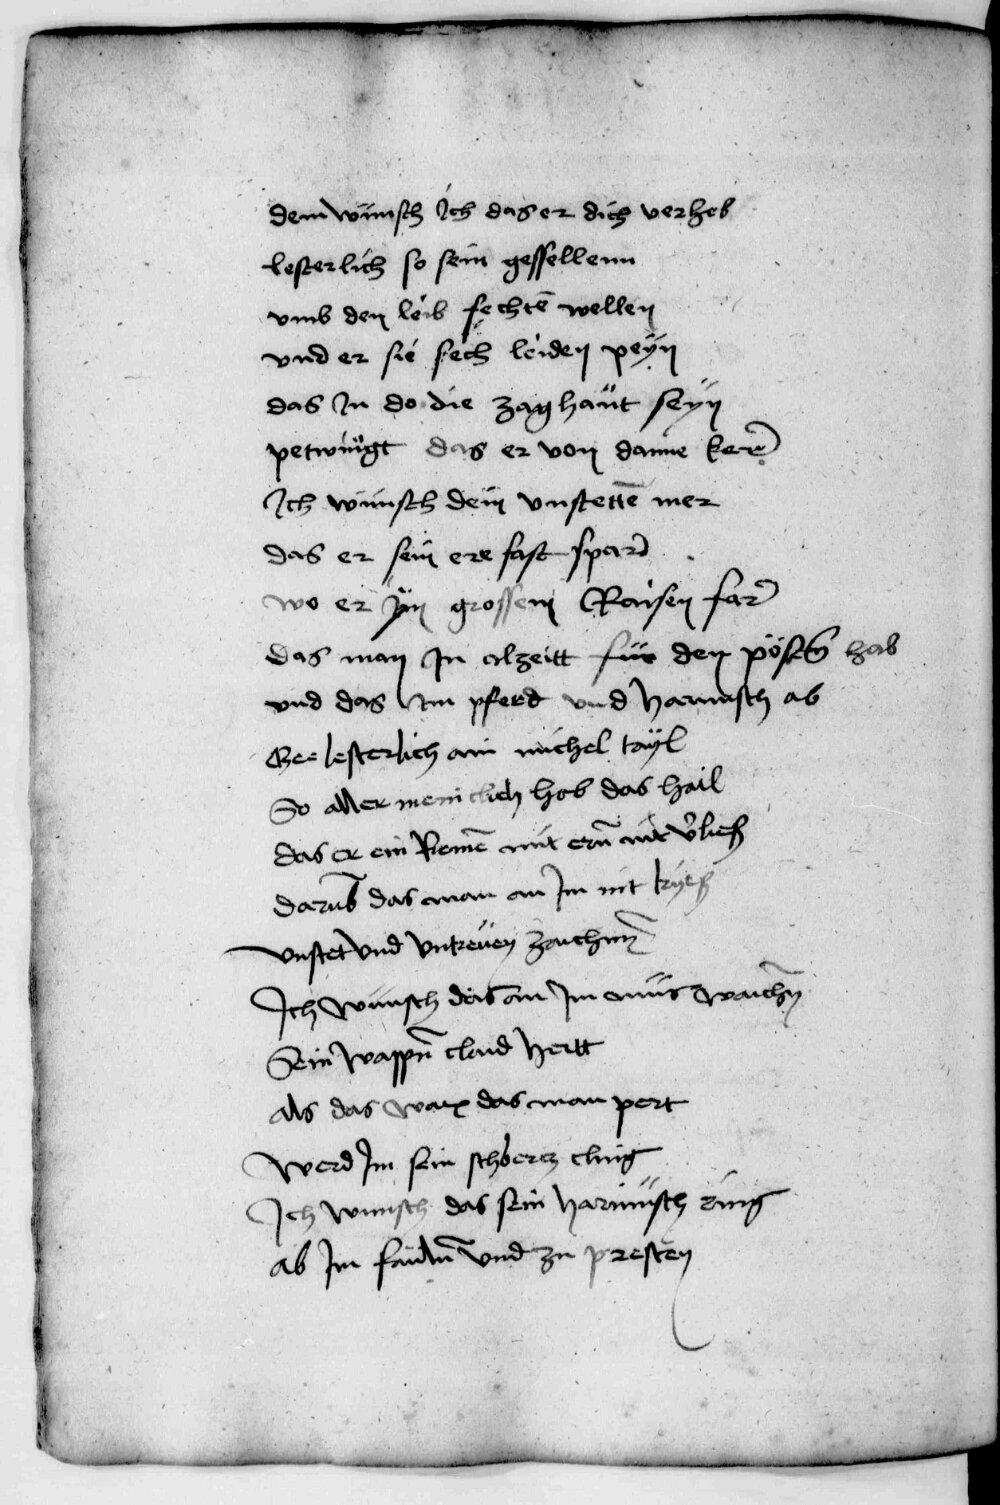 dem wünsch ich das er dich verheb
lesterlich so sein gesellenn
vmb den leib fechtē wellen
vnd er sie sech leiden peyn
das In do die zaghaüt seyn
petwingt das er von danne kere
Ich wünsch dem vnstettē mer
das er sein ere fast spar
wo er jn grossem Raisen far
das man In alzeitt für den pösten hab
vnd das Im pferd vnd harnasch ab
Gee lesterlich ain michel tayl
So aller menicklich hob das hail
das er ein Riemē mit ern nit v̄lies
darūb das man an Im nit kyes
vnstet vnd vntreuen zaichnn
Ich wünsch das an Im müs waichn
Sein wappn claid hertt
als das wax das man pert
Werd Im sein schbertz cling
Ich wünsch das sein harnüsch ring
ab Im fauln vnd zu presten